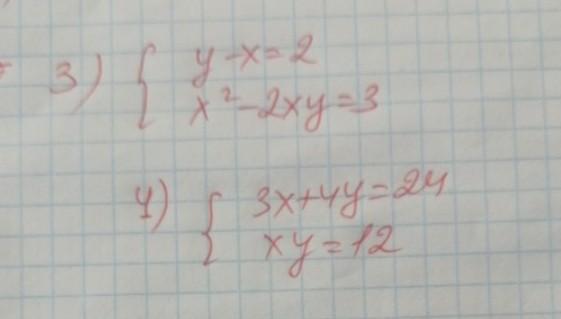 3) { y-x=2
x²-2xy=3
4) { 3x+4y=24
xy=12